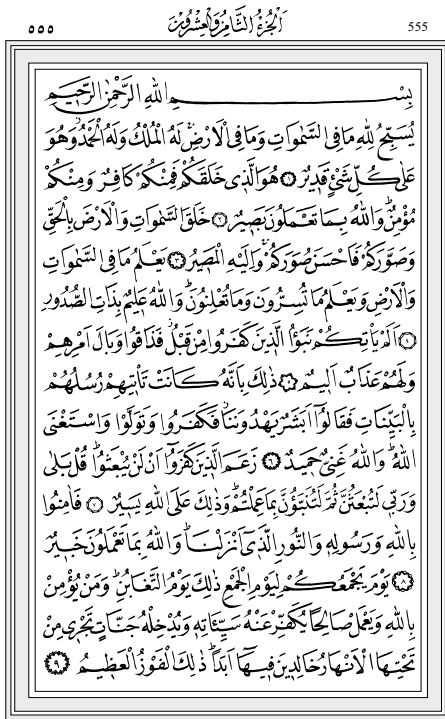 ٥٥٥ اَلْجُزْءُ الثَّامِنُ وَالْعِشْرُونَ 555
بِسْمِ اللهِ الرَّحْمٰنِ الرَّحٖيمِ
يُسَبِّحُ لِلّٰهِ مَا فِي السَّمٰوَاتِ وَمَا فِي الْاَرْضِۚ لَهُ الْمُلْكُ وَلَهُ الْحَمْدُۘ وَهُوَ
عَلٰى كُلِّ شَيْءٍ قَدٖيرٌ ﴿١﴾ هُوَ الَّذٖي خَلَقَكُمْ فَمِنْكُمْ كَافِرٌ وَمِنْكُمْ
مُؤْمِنٌۜ وَاللّٰهُ بِمَا تَعْمَلُونَ بَصٖيرٌ ﴿٢﴾ خَلَقَ السَّمٰوَاتِ وَالْاَرْضَ بِالْحَقِّ
وَصَوَّرَكُمْ فَاَحْسَنَ صُوَرَكُمْۚ وَاِلَيْهِ الْمَصٖيرُ ﴿٣﴾ يَعْلَمُ مَا فِي السَّمٰوَاتِ
وَالْاَرْضِ وَيَعْلَمُ مَا تُسِرُّونَ وَمَا تُعْلِنُونَۜ وَاللّٰهُ عَلٖيمٌ بِذَاتِ الصُّدُورِ
﴿٤﴾ اَلَمْ يَأْتِكُمْ نَبَؤُا الَّذٖينَ كَفَرُوا مِنْ قَبْلُۘ فَذَاقُوا وَبَالَ اَمْرِهِمْ
وَلَهُمْ عَذَابٌ اَلٖيمٌ ﴿٥﴾ ذٰلِكَ بِاَنَّهُ كَانَتْ تَأْتٖيهِمْ رُسُلُهُمْ
بِالْبَيِّنَاتِ فَقَالُٓوا اَبَشَرٌ يَهْدُونَنَاۘ فَكَفَرُوا وَتَوَلَّوْا وَاسْتَغْنَى
اللّٰهُۜ وَاللّٰهُ غَنِيٌّ حَمٖيدٌ ﴿٦﴾ زَعَمَ الَّذٖينَ كَفَرُٓوا اَنْ لَنْ يُبْعَثُواۜ قُلْ بَلٰى
وَرَبّٖي لَتُبْعَثُنَّ ثُمَّ لَتُنَبَّؤُنَّ بِمَا عَمِلْتُمْۜ وَذٰلِكَ عَلَى اللّٰهِ يَسٖيرٌ ﴿٧﴾ فَاٰمِنُوا
بِاللّٰهِ وَرَسُولِهٖ وَالنُّورِ الَّذٖٓي اَنْزَلْنَاۜ وَاللّٰهُ بِمَا تَعْمَلُونَ خَبٖيرٌ
﴿٨﴾ يَوْمَ يَجْمَعُكُمْ لِيَوْمِ الْجَمْعِ ذٰلِكَ يَوْمُ التَّغَابُنِۜ وَمَنْ يُؤْمِنْ
بِاللّٰهِ وَيَعْمَلْ صَالِحًا يُكَفِّرْ عَنْهُ سَيِّـَٔاتِهٖ وَيُدْخِلْهُ جَنَّاتٍ تَجْرٖي مِنْ
تَحْتِهَا الْاَنْهَارُ خَالِدٖينَ فٖيهَٓا اَبَدًاۜ ذٰلِكَ الْفَوْزُ الْعَظٖيمُ ﴿٩﴾